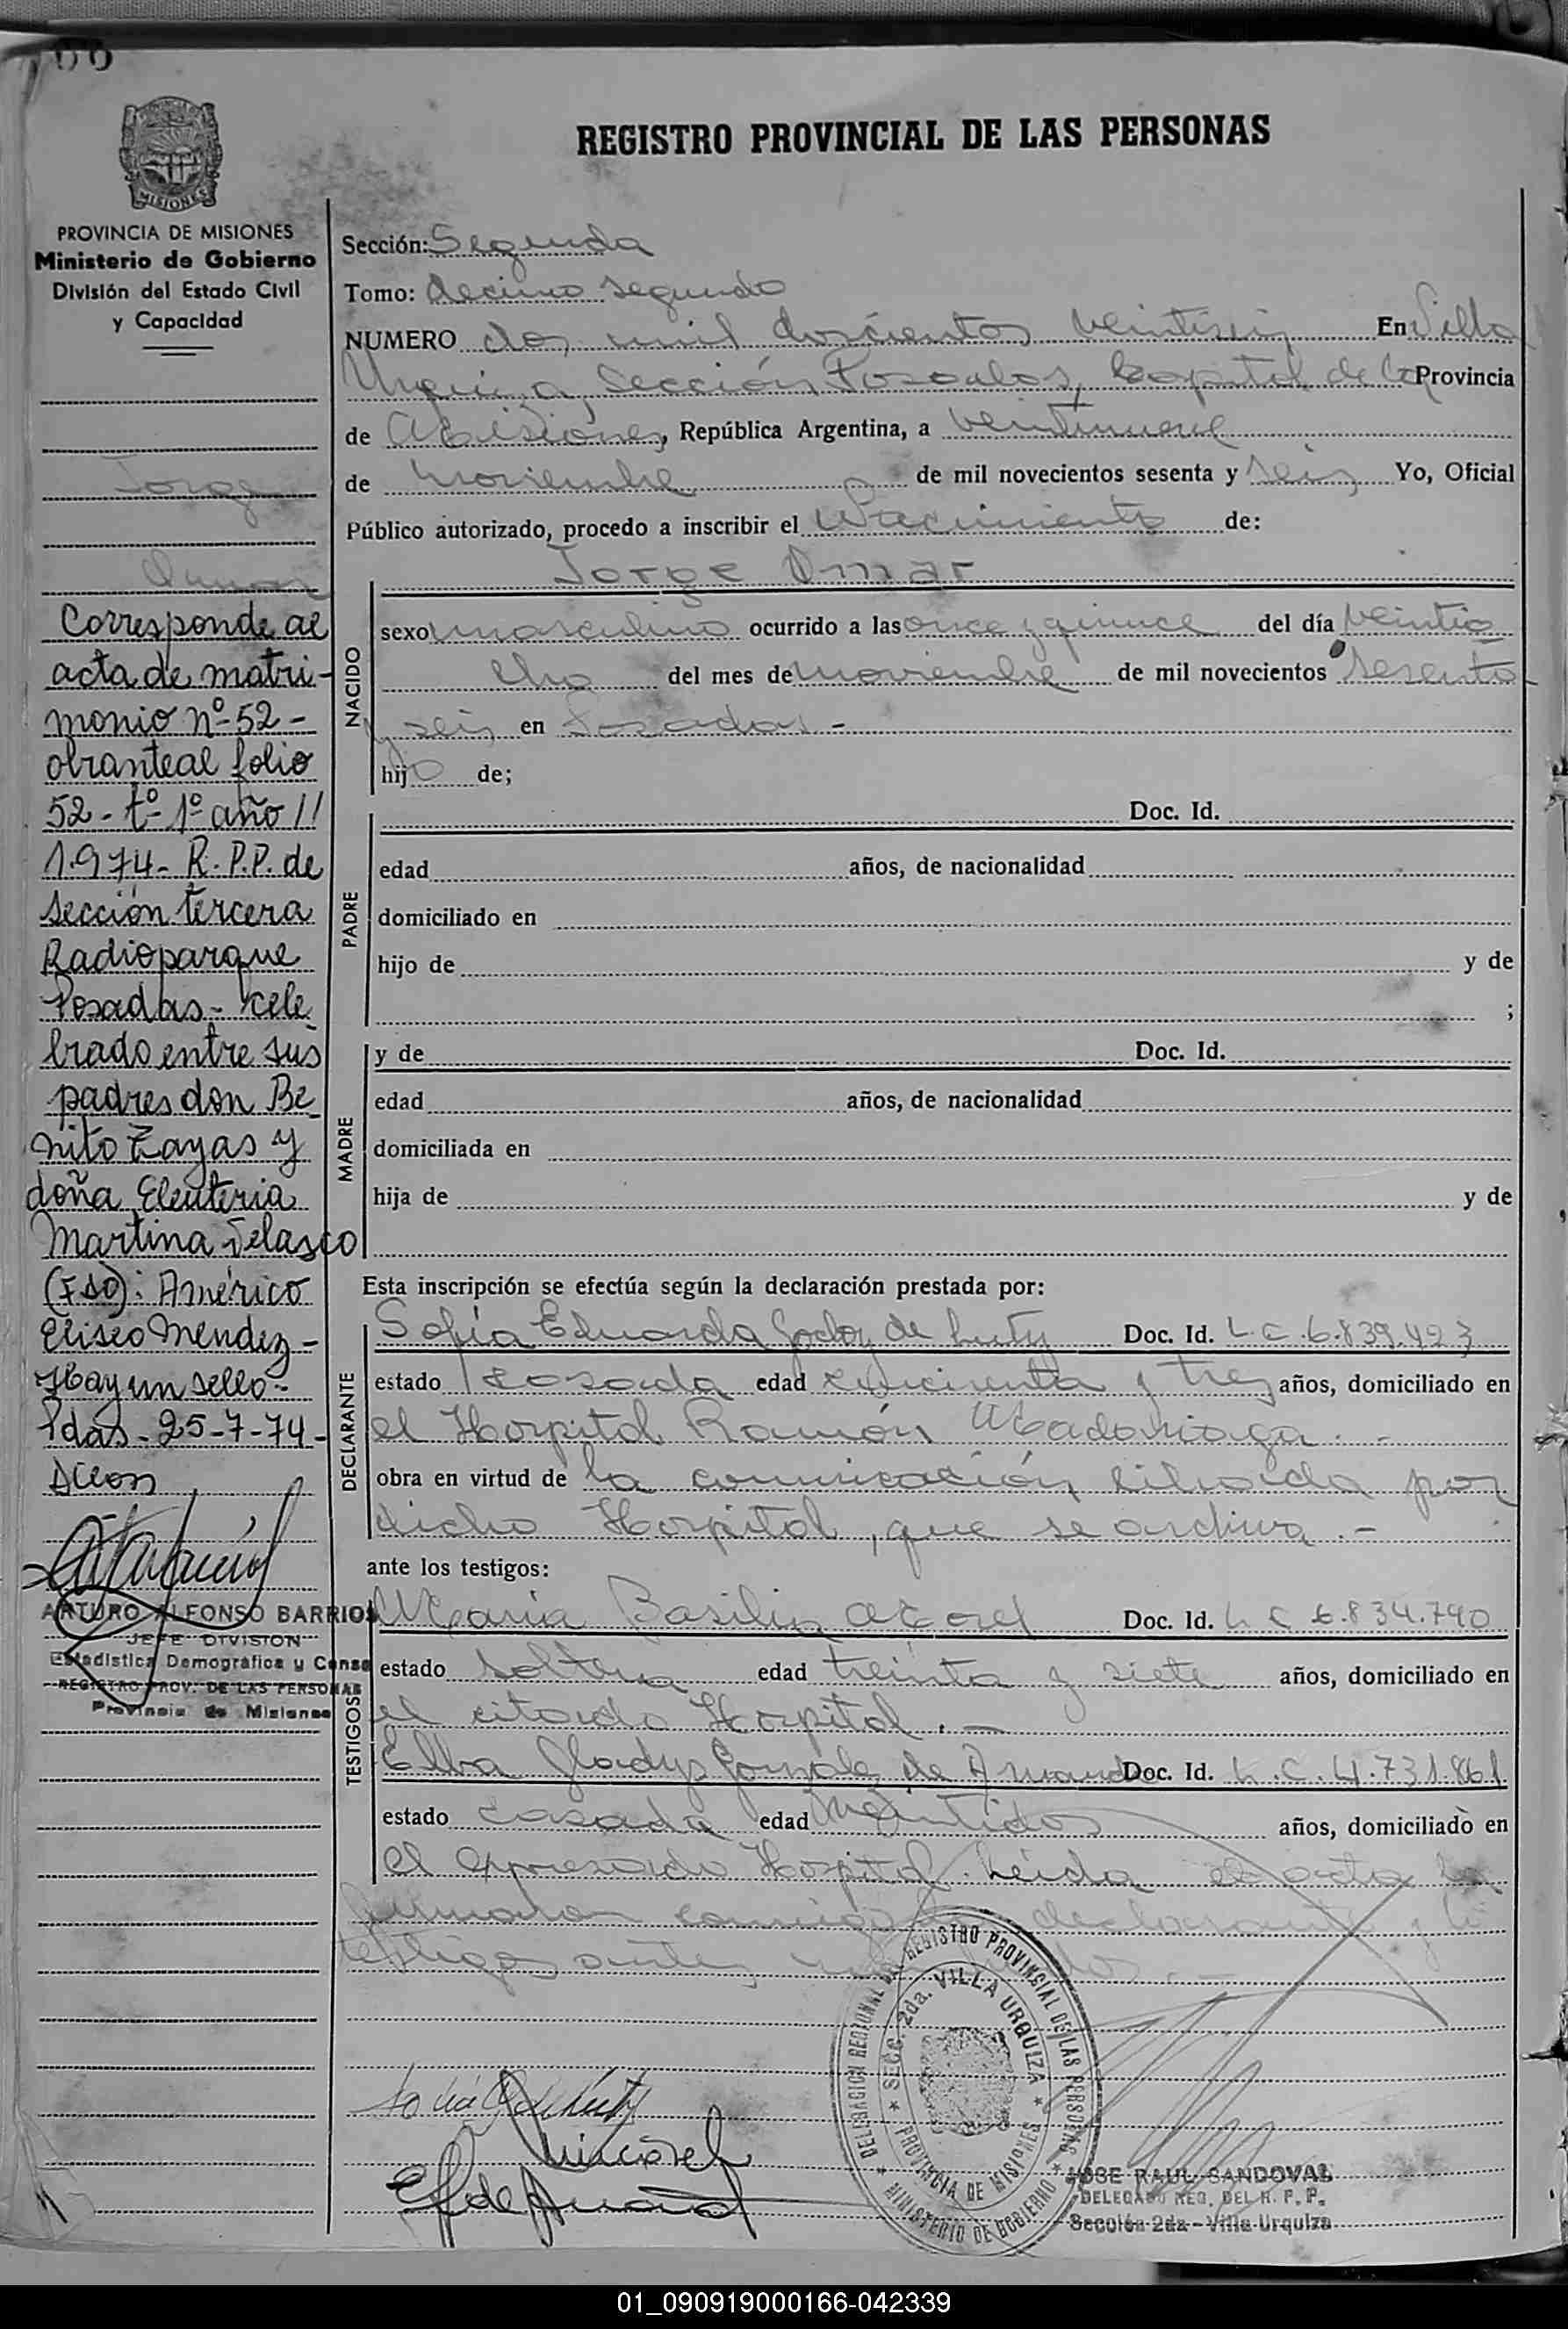 REGISTRO PROVINCIAL DE LAS PERSONAS
MISIONES
PROVINCIA DE MISIONES
Ministerio de Gobierno
División del Estado Civil
y Capacidad
Jorge
Omar
Corresponde al
acta de matri-
monio nº 52 -
obrante al folio
52 - tº 1º año //
1.974 - R. P.P. de
sección tercera
Radioparque
Posadas - cele
brado entre sus
padres don Be
nito Zayas y
doña Eleuteria
Martina Velasco
(Fdo): Américo
Eliseo Mendez -
Hay un sello -
Pdas - 25-7-74 -
ARTURO ALFONSO BARRIOS
JEFE DIVISION
Estadistica Demografica y Censo
REGISTRO PROV. DE LAS PERSONAS
Provincia de Misiones
Sección: Segunda
Tomo: decimo segundo
NUMERO dos mil doscientos veintiseis En Villa
Urquiza, Sección Posadas, Capital de la Provincia
de Misiones, República Argentina, a veintinueve
de noviembre de mil novecientos sesenta y seis Yo, Oficial
Público autorizado, procedo a inscribir el Nacimiento de:
Jorge Omar
NACIDO
sexo masculino ocurrido a las once y quince del día veintio
cho del mes de noviembre de mil novecientos sesenta
y seis en Posadas -
hijo de;
PADRE
Doc. Id.
edad años, de nacionalidad
domiciliado en
hijo de y de
;
MADRE
y de Doc. Id.
edad años, de nacionalidad
domiciliada en
hija de y de
Esta inscripción se efectúa según la declaración prestada por:
DECLARANTE
Sofía Eduarda Godoy de Doc. Id. L.C. 6.839.423
estado casada edad cincuenta y tres años, domiciliado en
el Hospital Ramón Madariaga. -
obra en virtud de la comunicación librada por
dicho Hospital, que se archiva. -
ante los testigos:
TESTIGOS
María Basilia Doc. Id. L C 6.834.790
estado soltera edad treinta y siete años, domiciliado en
el citado Hospital. -
Elba Gladys de Doc. Id. L.C. 4.731.861
estado casada edad veintidos años, domiciliado en
el expresado Hospital. Leida el acta la
firmaron conmigo declarante y
testigos antes
DELEGACION REGIONAL DEL REGISTRO PROVINCIAL DE LAS PERSONAS
SECC. 2da. VILLA URQUIZA
PROVINCIA DE MISIONES
MINISTERIO DE GOBIERNO
JOSE RAUL SANDOVAL
DELEGADO REG. DEL R. P. P.
Sección 2da - Villa Urquiza
01_090919000166-042339